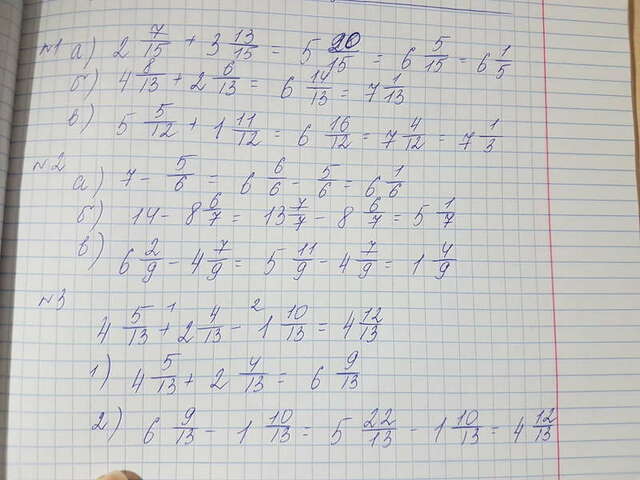 №1 а) 2 7/15 + 3 13/15 = 5 20/15 = 6 5/15 = 6 1/5
б) 4 8/13 + 2 6/13 = 6 14/13 = 7 1/13
в) 5 5/12 + 1 11/12 = 6 16/12 = 7 4/12 = 7 1/3
№2 а) 7 - 5/6 = 6 6/6 - 5/6 = 6 1/6
б) 14 - 8 6/7 = 13 7/7 - 8 6/7 = 5 1/7
в) 6 2/9 - 4 7/9 = 5 11/9 - 4 7/9 = 1 4/9
№3
4 5/13 +¹ 2 4/13 -² 1 10/13 = 4 12/13
1) 4 5/13 + 2 4/13 = 6 9/13
2) 6 9/13 - 1 10/13 = 5 22/13 - 1 10/13 = 4 12/13